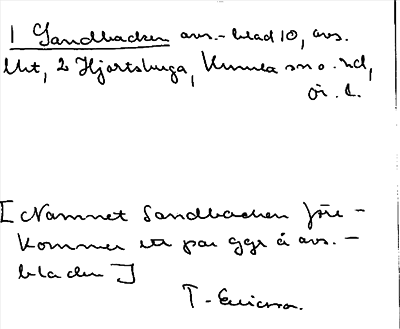 1 Sandbacken avs.-blad 10, avs.
Utt, 2 Hjortsbuga, Kumla sn o. hd,
ör. l.
[Namnet Sandbacken före-
kommer ett par ggr å avs.-
bladen]
T. Ericsson.